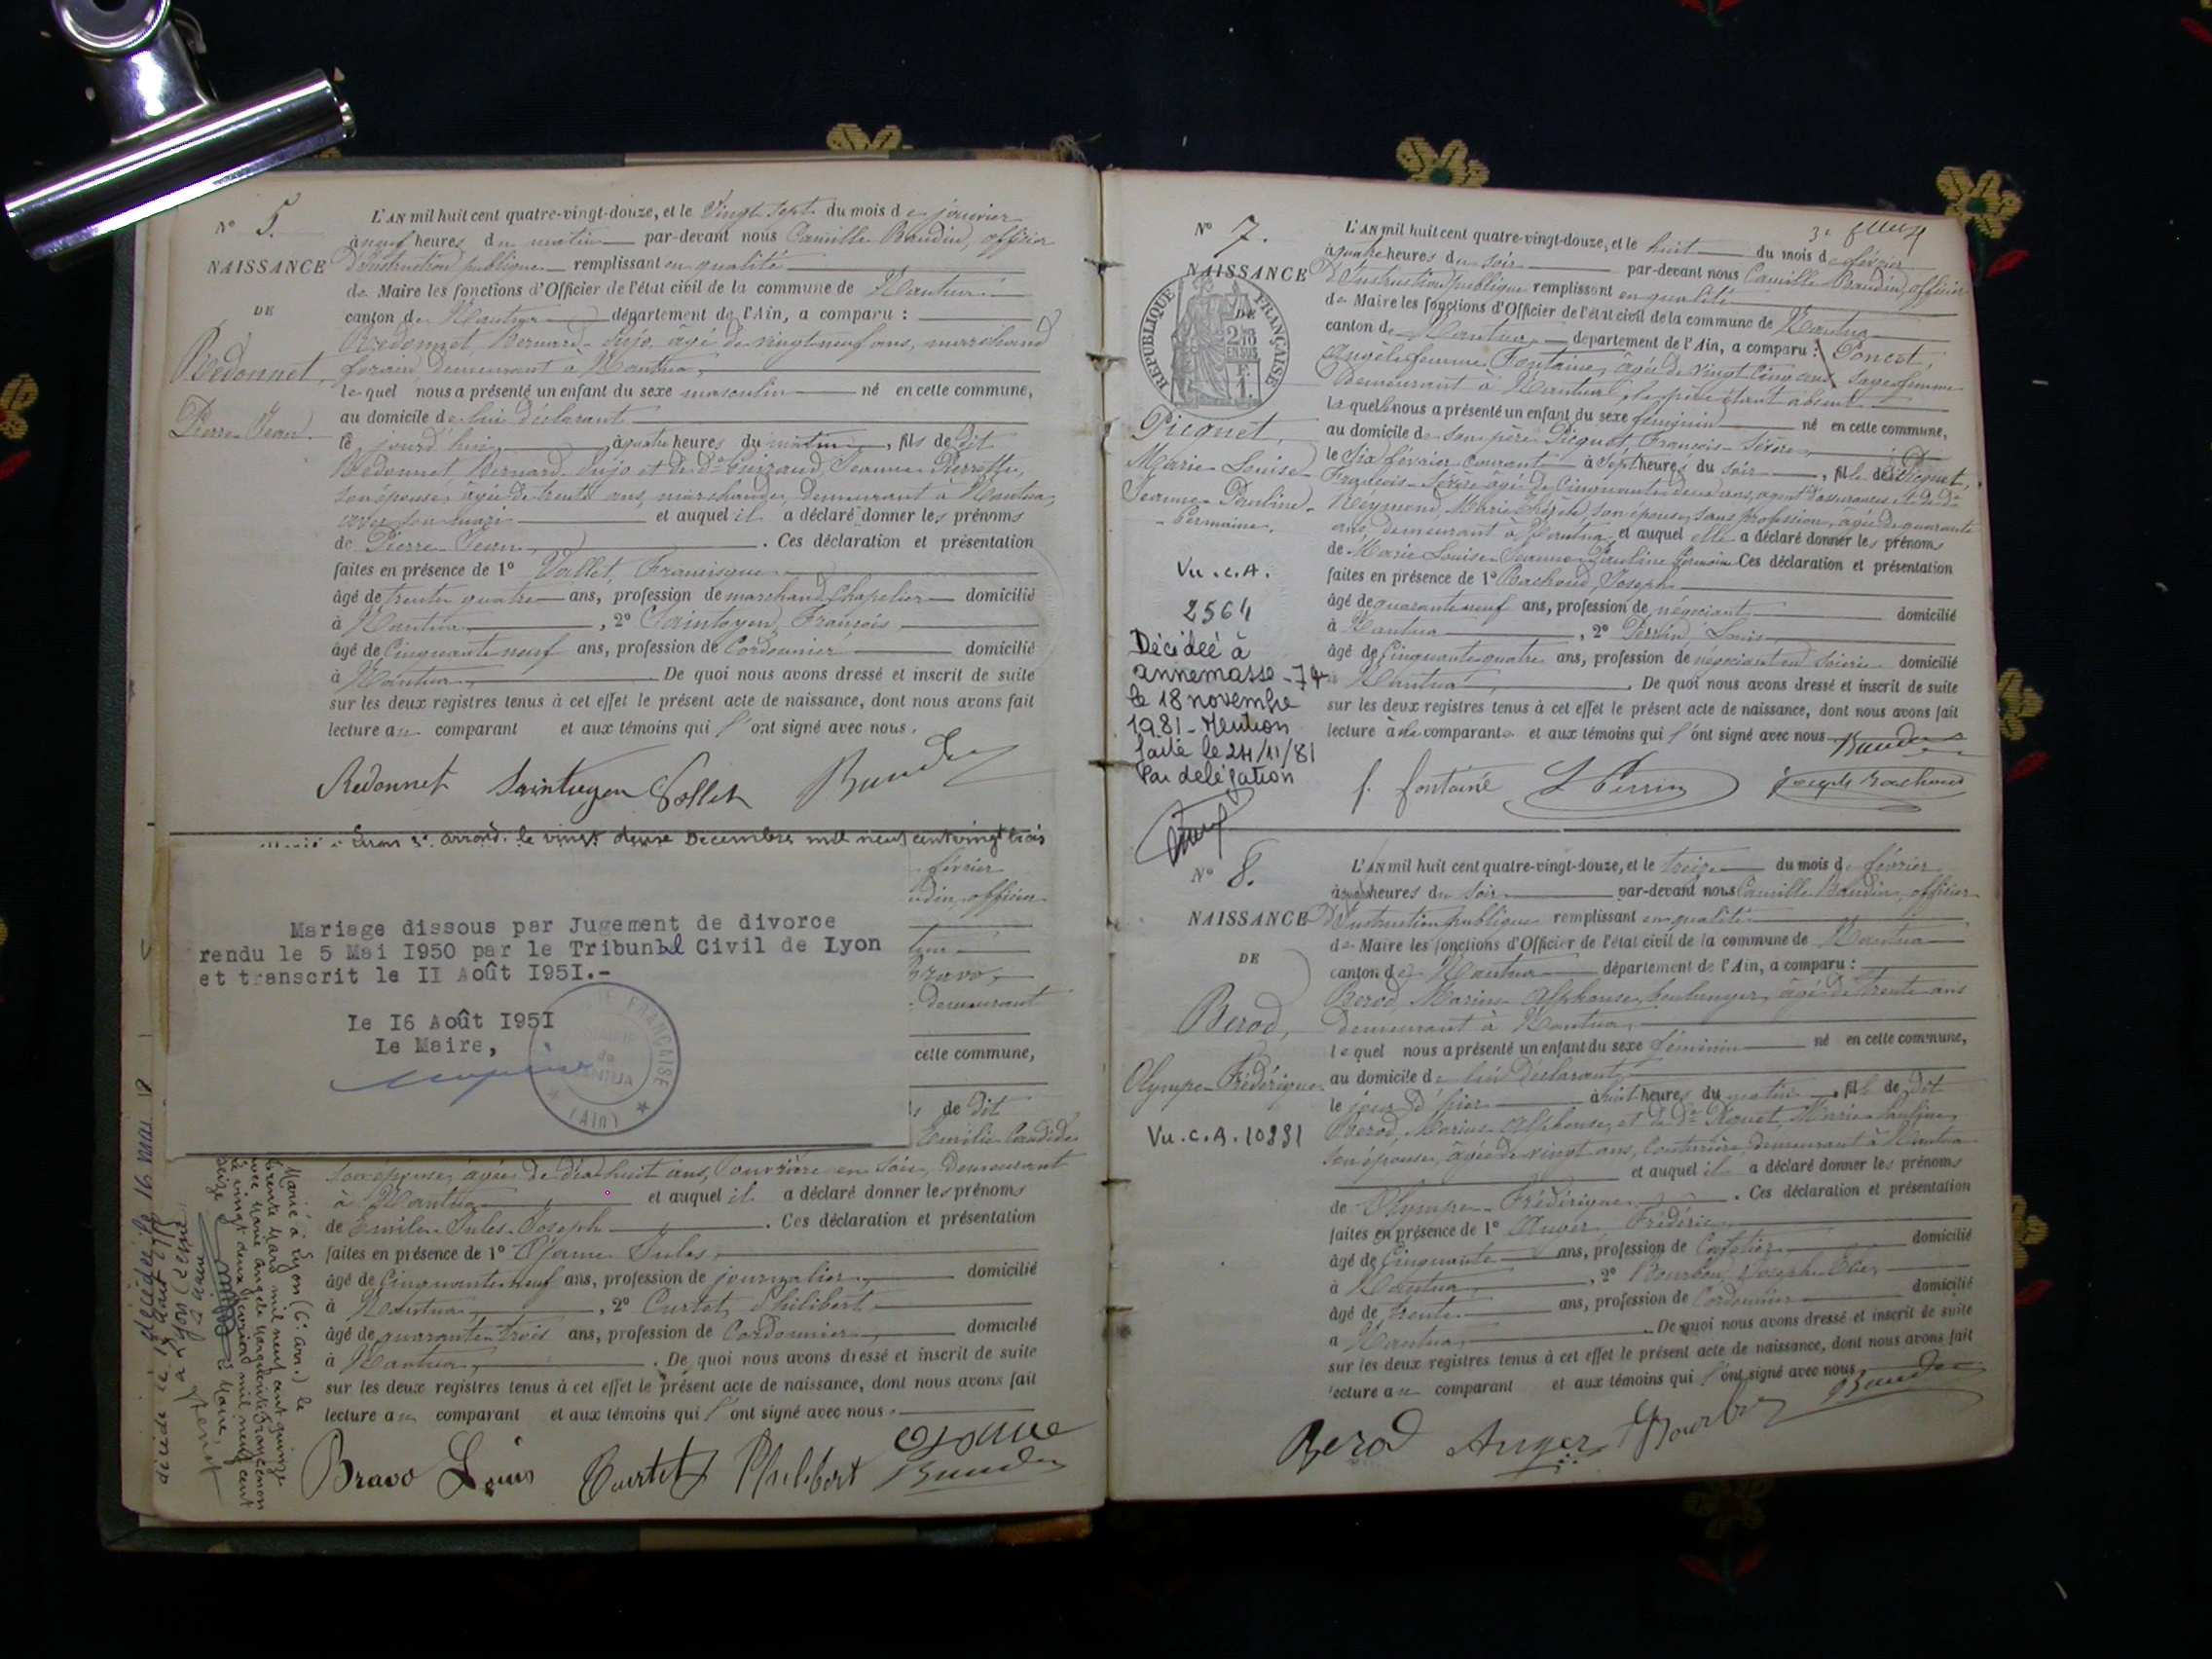 N° 5.
NAISSANCE
DE
Redonnet,
Pierre Jean.
L'AN mil huit cent quatre-vingt-douze, et le Vingt sept du mois de janvier
à neuf heures du matin par-devant nous Camille Baudin, officier
d'Instruction publique remplissant en qualité
de Maire les fonctions d'Officier de l'état civil de la commune de Nantua
canton de Nantua département de l'Ain, a comparu :
Redonnet, Bernard, âgé de vingt neuf ans, marchand
forain demeurant à Nantua,
lequel nous a présenté un enfant du sexe masculin né en cette commune,
au domicile de lui déclarant
ce jourd'hui à quatre heures du matin, fils de dit
Redonnet, Bernard et de de Jeanne Pierrette,
son épouse, âgée de trente ans, marchande, demeurant à Nantua,
avec son mari et auquel il a déclaré donner les prénoms
de Pierre Jean. Ces déclaration et présentation
faites en présence de 1° Vollet, Francisque
âgé de trente quatre ans, profession de marchand chapelier domicilié
à Nantua, 2° Saintoyen, François
âgé de Cinquante neuf ans, profession de Cordonnier domicilié
à Nantua. De quoi nous avons dressé et inscrit de suite
sur les deux registres tenus à cet effet le présent acte de naissance, dont nous avons fait
lecture au comparant et aux témoins qui l'ont signé avec nous.
Redonnet Saintoyen Vollet Baudin
arrond. le vingt deuse Decembre mil neuf cent vingt trois
février
officier
Bravo,
demeurant
cette commune,
de dit
Emilie Candide
Mariage dissous par Jugement de divorce
rendu le 5 Mai I950 par le Tribunal Civil de Lyon
et transcrit le II Août I95I.-
Le I6 Août I95I
Le Maire,
FRANÇAISE
de
NANTUA
(Ain)
son épouse, âgée de dix huit ans, ouvrière en soie, demeurant
à Nantua et auquel il a déclaré donner les prénoms
de Emile Jules Joseph. Ces déclaration et présentation
faites en présence de 1° Jules
âgé de Cinquante neuf ans, profession de journalier, domicilié
à Nantua, 2° Curtet, Philibert
âgé de quarante trois ans, profession de Cordonnier, domicilié
à Nantua. De quoi nous avons dressé et inscrit de suite
sur les deux registres tenus à cet effet le présent acte de naissance, dont nous avons fait
lecture au comparant et aux témoins qui l'ont signé avec nous.
Bravo Louis Curtet Philibert
Baudin
Marié à Lyon (6e arr.) le
trente Mars mil neuf cent quinze
avec Marie Angèle Marguerite
le vingt deux mil neuf cent
seize
le Maire,
décédé le
à Lyon
N° 7.
NAISSANCE
DE
RÉPUBLIQUE FRANÇAISE
2/10
EN SUS
1.
Picquet,
Marie Louise
Jeanne Pauline
Germaine.
Vu. C.A.
2564
Décédée à
annemasse - 74
le 18 novembre
1981 - Mention
faite le 24/11/81
Par délégation
L'AN mil huit cent quatre-vingt-douze, et le huit du mois de février
à quatre heures du soir par-devant nous Camille Baudin, officier
d'Instruction publique remplissant en qualité
de Maire les fonctions d'Officier de l'état civil de la commune de Nantua
canton de Nantua, département de l'Ain, a comparu : Poncet,
Angèle femme Fontaine, âgée de vingt cinq ans, sage femme
demeurant à Nantua, le père étant absent
laquelle nous a présenté un enfant du sexe féminin né en cette commune,
au domicile de son père Picquet, François
le Six février courant à sept heures du soir, fille de Picquet,
François âgé de Cinquante deux ans, agent d'assurances, et de de
Reymond, Marie son épouse, sans profession, âgée de quarante
ans, demeurant à Nantua, et auquel elle a déclaré donner les prénoms
de Marie Louise Jeanne Pauline Germaine Ces déclaration et présentation
faites en présence de 1° Rachaud, Joseph
âgé de quarante neuf ans, profession de négociant domicilié
à Nantua, 2° Perrin Louis
âgé de Cinquante quatre ans, profession de négociant en soierie domicilié
à Nantua. De quoi nous avons dressé et inscrit de suite
sur les deux registres tenus à cet effet le présent acte de naissance, dont nous avons fait
lecture à la comparante et aux témoins qui l'ont signé avec nous Baudin
f. fontaine L Perrin Joseph Rachaud
N° 8.
NAISSANCE
DE
Berod,
Olympe Frédérique
Vu. C.A. 10881
L'AN mil huit cent quatre-vingt-douze, et le treize du mois de février
à heures du soir par-devant nous Camille Baudin, officier
d'Instruction publique remplissant en qualité
de Maire les fonctions d'Officier de l'état civil de la commune de Nantua
canton de Nantua département de l'Ain, a comparu :
Berod, Marius Alphonse, boulanger, âgé de trente ans
demeurant à Nantua,
lequel nous a présenté un enfant du sexe féminin né en cette commune,
au domicile de lui déclarant
le jour d'hier à huit heures du matin, fille de dit
Berod, Marius Alphonse, et de de Marie Pauline,
son épouse, âgée de vingt ans, couturière, demeurant à Nantua
et auquel il a déclaré donner les prénoms
de Olympe Frédérique. Ces déclaration et présentation
faites en présence de 1° Auger, Frédéric
âgé de Cinquante ans, profession de Cafetier domicilié
à Nantua, 2° Bourbon, Joseph
âgé de trente ans, profession de Cordonnier domicilié
à Nantua. De quoi nous avons dressé et inscrit de suite
sur les deux registres tenus à cet effet le présent acte de naissance, dont nous avons fait
lecture au comparant et aux témoins qui l'ont signé avec nous
Berod Auger Bourbon Baudin